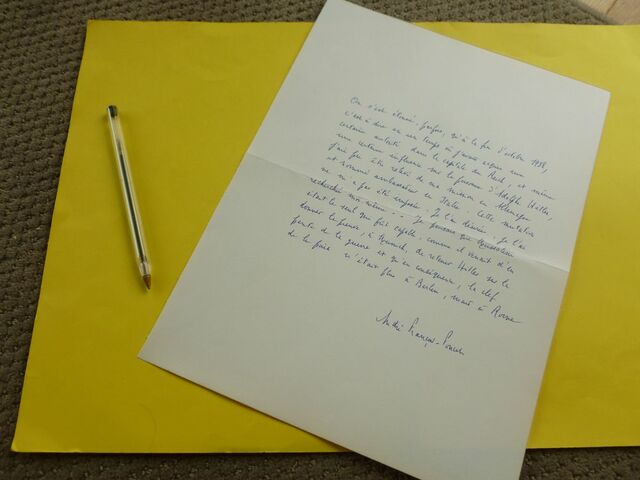 On s'est étonné, parfois, qu'à la fin d'octobre 1938,
c'est à dire en un temps où j'avais acquis une
certaine autorité dans la capitale du Reich, et même
une certaine influence sur la personne d'Adolphe Hitler,
j'aie pu être relevé de ma mission en Allemagne
et nommé ambassadeur en Italie. Cette mutation
ne m'a pas été imposée. Je l'ai désirée; je l'ai
recherchée moi-même... Je pensais que Mussolini
était le seul qui fût capable, comme il venait d'en
donner la preuve, à Munich, de retenir Hitler sur la
pente de la guerre et qu'en conséquence, la clef
de la paix n'était plus à Berlin, mais à Rome
André François-Poncet